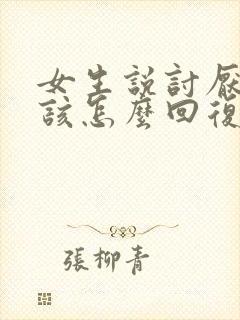 女生説討厭
該怎麽回復
張柳青